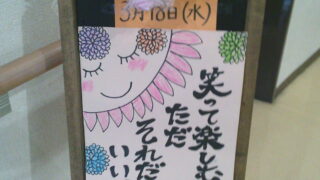 3月18日(水)
笑って楽しむ
ただ
それだ
いい